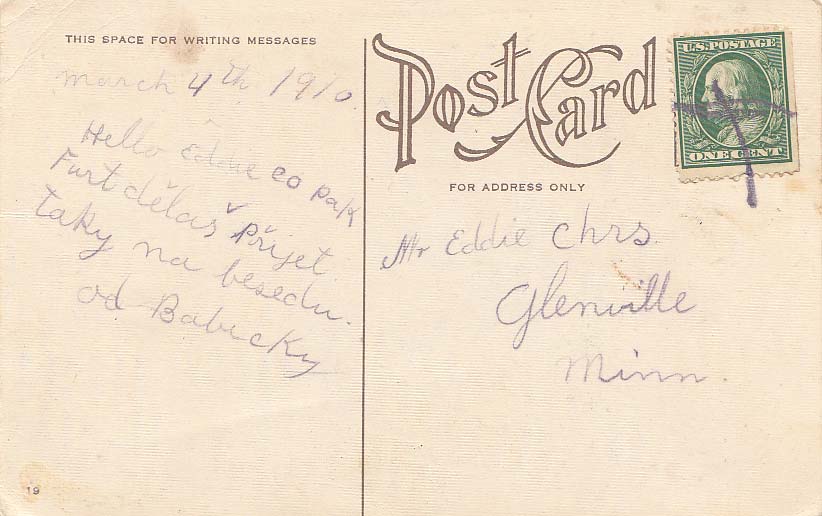 THIS SPACE FOR WRITING MESSAGES
March 4th 1910.
Hello Eddie co pak
Furt dělaš přijet
taky na besedu.
od Babicky
19
Post Card
FOR ADDRESS ONLY
Mr Eddie Chrs.
Glenville
Minn.
U.S. POSTAGE
ONE CENT